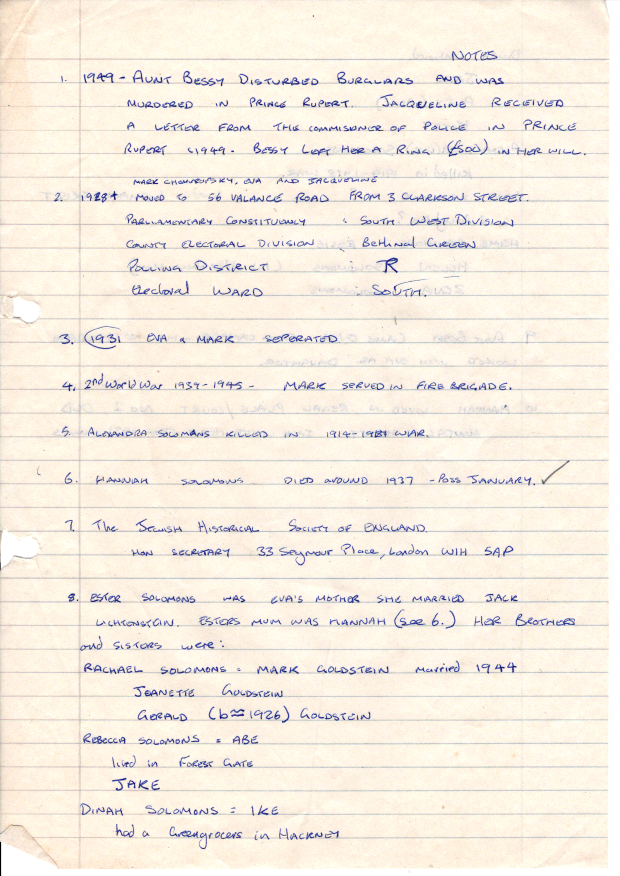 NOTES
1. 1949 - AUNT BESSY DISTURBED BURGLARS AND WAS
MURDERED IN PRINCE RUPERT. JACQUELINE RECEIVED
A LETTER FROM THE COMMISIONER OF POLICE IN PRINCE
RUPERT 1949 - BESSY LEFT HER A RING (£500) IN HER WILL.
MARK EVA AND JACQUELINE
2. 1928+ MOVED TO 56 VALANCE ROAD FROM 3 CLARKSON STREET.
PARLIAMENTARY CONSTITUENCY : SOUTH WEST DIVISION
COUNTY ELECTORAL DIVISION : Bethnal Green
POLLING DISTRICT : R
Electoral WARD : SOUTH.
3. 1931 EVA & MARK SEPERATED
4. 2nd World War 1939-1945 - MARK SERVED IN FIRE BRIGADE.
5. ALEXANDRA SOLOMANS KILLED IN 1914- WAR.
6. HANNAH SOLOMONS DIED AROUND 1937 - POSS JANUARY. ✓
7. The JEWISH HISTORICAL SOCIETY OF ENGLAND.
HON SECRETARY 33 Seymour Place, London W1H 5AP
8. ESTER SOLOMONS WAS EVA'S MOTHER SHE MARRIED JACK
LICHTENSTEIN. ESTERS MUM WAS HANNAH (see 6.) HER BROTHERS
and sisters were:
RACHAEL SOLOMONS = MARK GOLDSTEIN married 1944
JEANETTE GOLDSTEIN
GERALD (b≈1926) GOLDSTEIN
REBECCA SOLOMONS = ABE
lived in FOREST GATE
JAKE
DINAH SOLOMONS = IKE
had a Greengrocers in HACKNEY